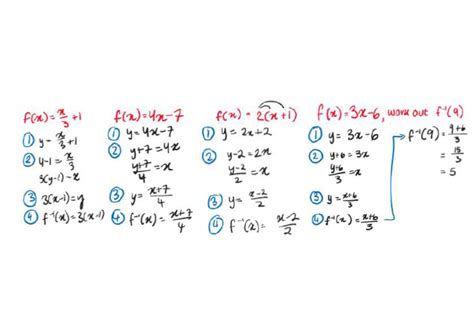 f(x) = x/3 + 1
① y = x/3 + 1
② y-1 = x/3
3(y-1) = x
③ 3(x-1) = y
④ f⁻¹(x) = 3(x-1)
f(x) = 4x-7
① y = 4x-7
② y+7 = 4x
y+7/4 = x
③ y = x+7/4
④ f⁻¹(x) = x+7/4
f(x) = 2(x+1)
① y = 2x+2
② y-2 = 2x
y-2/2 = x
③ y = x-2/2
④ f⁻¹(x) = x-2/2
f(x) = 3x-6, work out f⁻¹(9)
① y = 3x-6
② y+6 = 3x
y+6/3 = x
③ y = x+6/3
④ f⁻¹(x) = x+6/3
f⁻¹(9) = 9+6/3
= 15/3
= 5